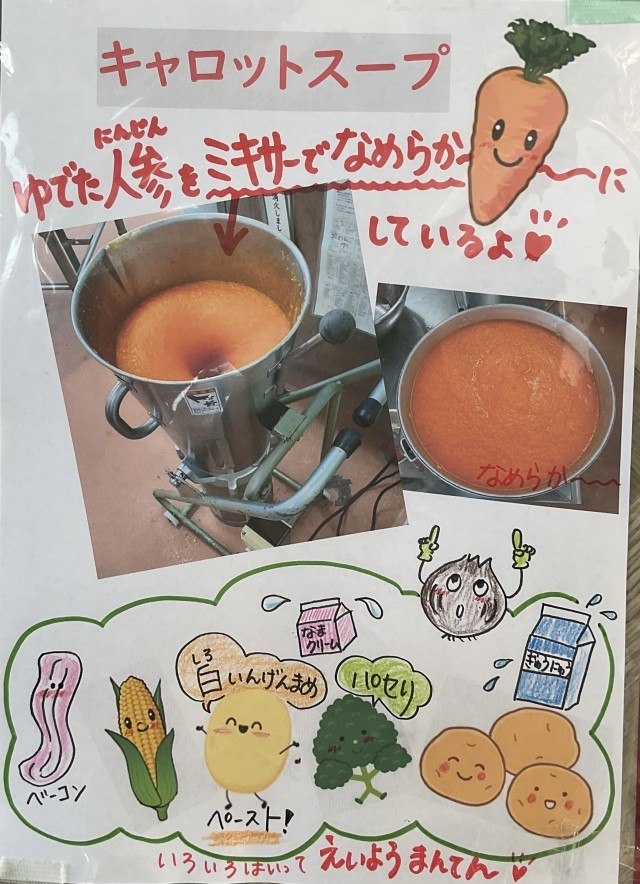 キャロットスープ
にんじん
ゆでた人参をミキサーでなめらか〜〜に
しているよ
なめらか〜〜
なま
クリーム
ぎゅうにゅう
しろ
白いんげんまめ
パセリ
ベーコン
ペースト!
いろいろはいって えいようまんてん